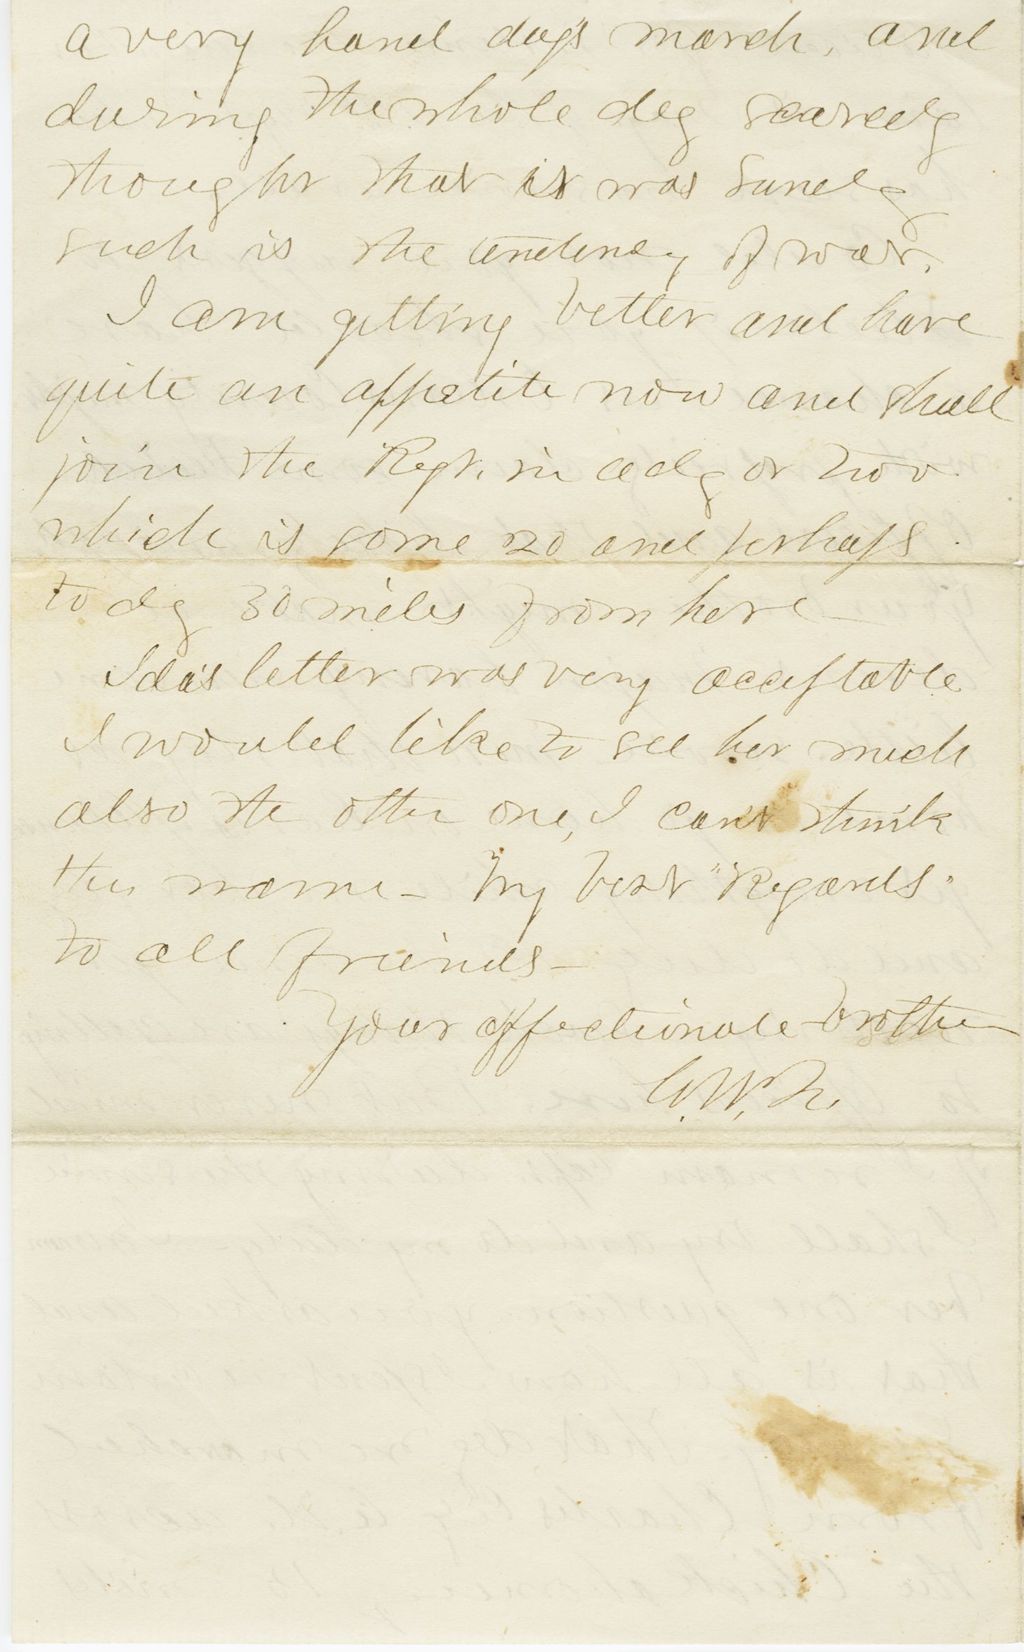 a very hard day's march, and
during the whole day scarcely
thought that it was Sunday
such is the tendency of war.
I am getting better and have
quite an appetite now and shall
join the Regt. in a day or two
which is some 20 and perhaps
to day 30 miles from here
Ida's letter was very acceptable
I would like to see her much
also the other one, I can't think
the name - My best "Regards"
to all friends -
Your affectionate brother
G.W.R.